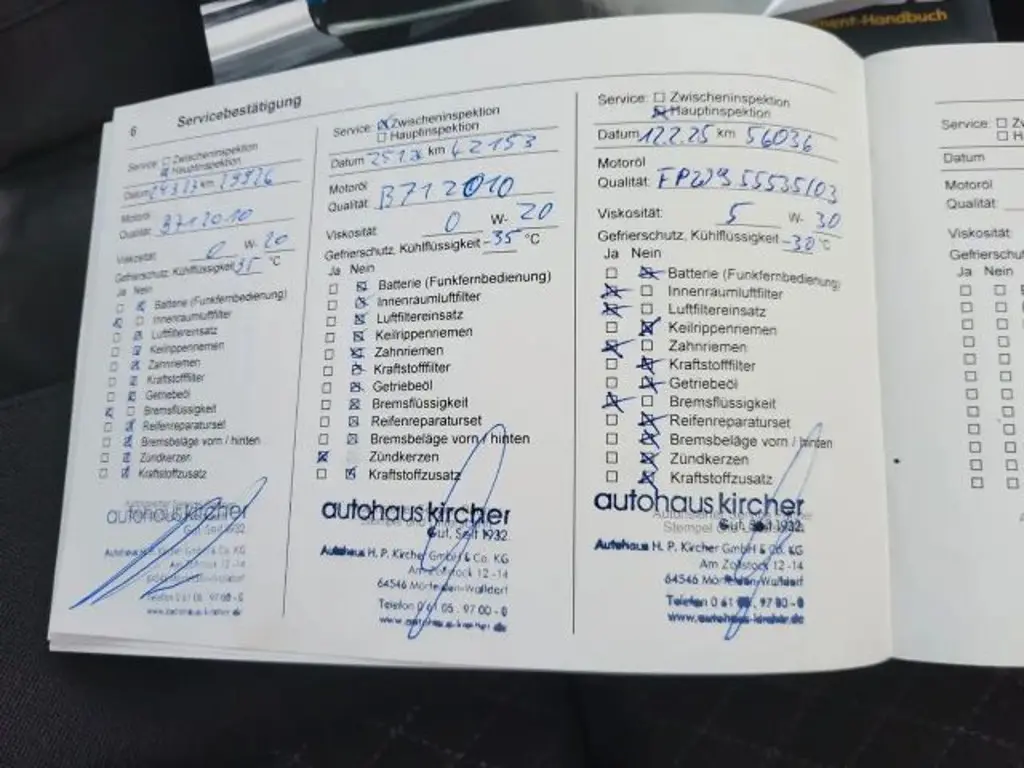 ment-Handbuch
6 Servicebestätigung
Service: ☐ Zwischeninspektion
☒ Hauptinspektion
Datum km
Motoröl
Qualität: B712010
Viskosität: 0 W- 20
Gefrierschutz, Kühlflüssigkeit -35 °C
Ja Nein
☐ ☒ Batterie (Funkfernbedienung)
☒ ☐ Innenraumluftfilter
☐ ☒ Luftfiltereinsatz
☐ ☒ Keilrippenriemen
☐ ☒ Zahnriemen
☐ ☒ Kraftstofffilter
☐ ☒ Getriebeöl
☒ ☐ Bremsflüssigkeit
☐ ☒ Reifenreparaturset
☐ ☒ Bremsbeläge vorn / hinten
☐ ☒ Zündkerzen
☐ ☒ Kraftstoffzusatz
autohaus kircher
Gut. Seit 1932.
Autohaus H. P. Kircher GmbH & Co. KG
Am Zollstock 12 -14
64546 Mörfelden-Walldorf
Telefon 0 61 05 . 97 00 - 0
www.autohaus-kircher.de
Service: ☒ Zwischeninspektion
☐ Hauptinspektion
Datum km 42153
Motoröl
Qualität: B712010
Viskosität: 0 W- 20
Gefrierschutz, Kühlflüssigkeit -35 °C
Ja Nein
☐ ☒ Batterie (Funkfernbedienung)
☐ ☒ Innenraumluftfilter
☐ ☒ Luftfiltereinsatz
☐ ☒ Keilrippenriemen
☐ ☒ Zahnriemen
☐ ☒ Kraftstofffilter
☐ ☒ Getriebeöl
☐ ☒ Bremsflüssigkeit
☐ ☒ Reifenreparaturset
☐ ☒ Bremsbeläge vorn / hinten
☒ ☐ Zündkerzen
☐ ☒ Kraftstoffzusatz
autohaus kircher
Gut. Seit 1932.
Autohaus H. P. Kircher GmbH & Co. KG
Am Zollstock 12 -14
64546 Mörfelden-Walldorf
Telefon 0 61 05 . 97 00 - 0
www.autohaus-kircher.de
Service: ☐ Zwischeninspektion
☒ Hauptinspektion
Datum 12.2.25 km 56036
Motoröl
Qualität: FPW9.55535/03
Viskosität: 5 W- 30
Gefrierschutz, Kühlflüssigkeit -30 °C
Ja Nein
☐ ☒ Batterie (Funkfernbedienung)
☒ ☐ Innenraumluftfilter
☒ ☐ Luftfiltereinsatz
☐ ☒ Keilrippenriemen
☒ ☐ Zahnriemen
☐ ☒ Kraftstofffilter
☐ ☒ Getriebeöl
☒ ☐ Bremsflüssigkeit
☐ ☒ Reifenreparaturset
☐ ☒ Bremsbeläge vorn / hinten
☐ ☒ Zündkerzen
☐ ☒ Kraftstoffzusatz
autohaus kircher
Stempel
Gut. Seit 1932.
Autohaus H. P. Kircher GmbH & Co. KG
Am Zollstock 12 -14
64546 Mörfelden-Walldorf
Telefon 0 61 05 . 97 00 - 0
www.autohaus-kircher.de
Service: ☐
☐
Datum
Motoröl
Qualität:
Viskosität:
Ja Nein